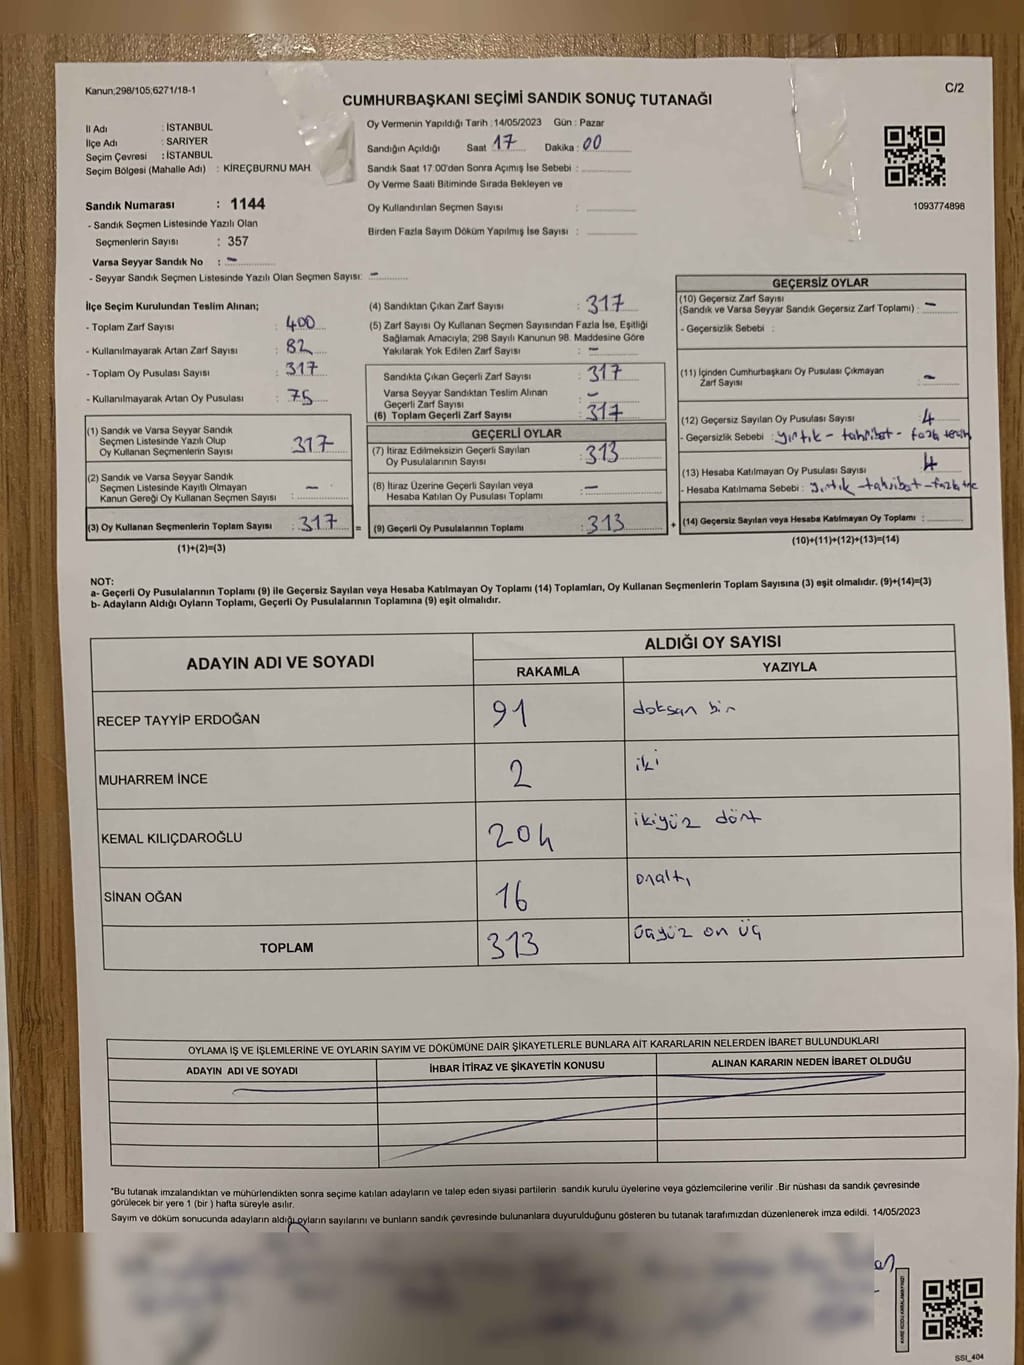 Kanun;298/105;6271/18-1
C/2
CUMHURBAŞKANI SEÇİMİ SANDIK SONUÇ TUTANAĞI
İl Adı : İSTANBUL
İlçe Adı : SARIYER
Seçim Çevresi : İSTANBUL
Seçim Bölgesi (Mahalle Adı) : KİREÇBURNU MAH.
Sandık Numarası : 1144
- Sandık Seçmen Listesinde Yazılı Olan
Seçmenlerin Sayısı : 357
Varsa Seyyar Sandık No : -
- Seyyar Sandık Seçmen Listesinde Yazılı Olan Seçmen Sayısı: -
Oy Vermenin Yapıldığı Tarih : 14/05/2023 Gün : Pazar
Sandığın Açıldığı Saat 17 Dakika : 00
Sandık Saat 17.00'den Sonra Açımış İse Sebebi :
Oy Verme Saati Bitiminde Sırada Bekleyen ve
Oy Kullandırılan Seçmen Sayısı :
Birden Fazla Sayım Döküm Yapılmış İse Sayısı :
1093774898
İlçe Seçim Kurulundan Teslim Alınan;
- Toplam Zarf Sayısı : 400
- Kullanılmayarak Artan Zarf Sayısı : 82
- Toplam Oy Pusulası Sayısı : 317
- Kullanılmayarak Artan Oy Pusulası : 75
(1) Sandık ve Varsa Seyyar Sandık
Seçmen Listesinde Yazılı Olup
Oy Kullanan Seçmenlerin Sayısı : 317
(2) Sandık ve Varsa Seyyar Sandık
Seçmen Listesinde Kayıtlı Olmayan
Kanun Gereği Oy Kullanan Seçmen Sayısı : -
(3) Oy Kullanan Seçmenlerin Toplam Sayısı : 317 =
(1)+(2)=(3)
(4) Sandıktan Çıkan Zarf Sayısı : 317
(5) Zarf Sayısı Oy Kullanan Seçmen Sayısından Fazla İse, Eşitliği
Sağlamak Amacıyla, 298 Sayılı Kanunun 98. Maddesine Göre
Yakılarak Yok Edilen Zarf Sayısı : -
Sandıkta Çıkan Geçerli Zarf Sayısı : 317
Varsa Seyyar Sandıktan Teslim Alınan
Geçerli Zarf Sayısı : -
(6) Toplam Geçerli Zarf Sayısı : 317
GEÇERLİ OYLAR
(7) İtiraz Edilmeksizin Geçerli Sayılan
Oy Pusulalarının Sayısı : 313
(8) İtiraz Üzerine Geçerli Sayılan veya
Hesaba Katılan Oy Pusulası Toplamı : -
(9) Geçerli Oy Pusulalarının Toplamı : 313 +
GEÇERSİZ OYLAR
(10) Geçersiz Zarf Sayısı
(Sandık ve Varsa Seyyar Sandık Geçersiz Zarf Toplamı) : -
- Geçersizlik Sebebi :
(11) İçinden Cumhurbaşkanı Oy Pusulası Çıkmayan
Zarf Sayısı : -
(12) Geçersiz Sayılan Oy Pusulası Sayısı : 4
- Geçersizlik Sebebi : yırtık - tahribat - fazla
(13) Hesaba Katılmayan Oy Pusulası Sayısı : 4
- Hesaba Katılmama Sebebi : yırtık - tahribat - fazla
(14) Geçersiz Sayılan veya Hesaba Katılmayan Oy Toplamı :
(10)+(11)+(12)+(13)=(14)
NOT:
a- Geçerli Oy Pusulalarının Toplamı (9) ile Geçersiz Sayılan veya Hesaba Katılmayan Oy Toplamı (14) Toplamları, Oy Kullanan Seçmenlerin Toplam Sayısına (3) eşit olmalıdır. (9)+(14)=(3)
b- Adayların Aldığı Oyların Toplamı, Geçerli Oy Pusulalarının Toplamına (9) eşit olmalıdır.
ADAYIN ADI VE SOYADI
ALDIĞI OY SAYISI
RAKAMLA YAZIYLA
RECEP TAYYİP ERDOĞAN 91 doksan bir
MUHARREM İNCE 2 iki
KEMAL KILIÇDAROĞLU 204 ikiyüz dört
SİNAN OĞAN 16 onaltı
TOPLAM 313 üçyüz on üç
OYLAMA İŞ VE İŞLEMLERİNE VE OYLARIN SAYIM VE DÖKÜMÜNE DAİR ŞİKAYETLERLE BUNLARA AİT KARARLARIN NELERDEN İBARET BULUNDUKLARI
ADAYIN ADI VE SOYADI İHBAR İTİRAZ VE ŞİKAYETİN KONUSU ALINAN KARARIN NEDEN İBARET OLDUĞU
*Bu tutanak imzalandıktan ve mühürlendikten sonra seçime katılan adayların ve talep eden siyasi partilerin sandık kurulu üyelerine veya gözlemcilerine verilir .Bir nüshası da sandık çevresinde
görülecek bir yere 1 (bir ) hafta süreyle asılır.
Sayım ve döküm sonucunda adayların aldığı oyların sayılarını ve bunların sandık çevresinde bulunanlara duyurulduğunu gösteren bu tutanak tarafımızdan düzenlenerek imza edildi. 14/05/2023
KARE KODU KARALAMAYINIZ!
SSI_404